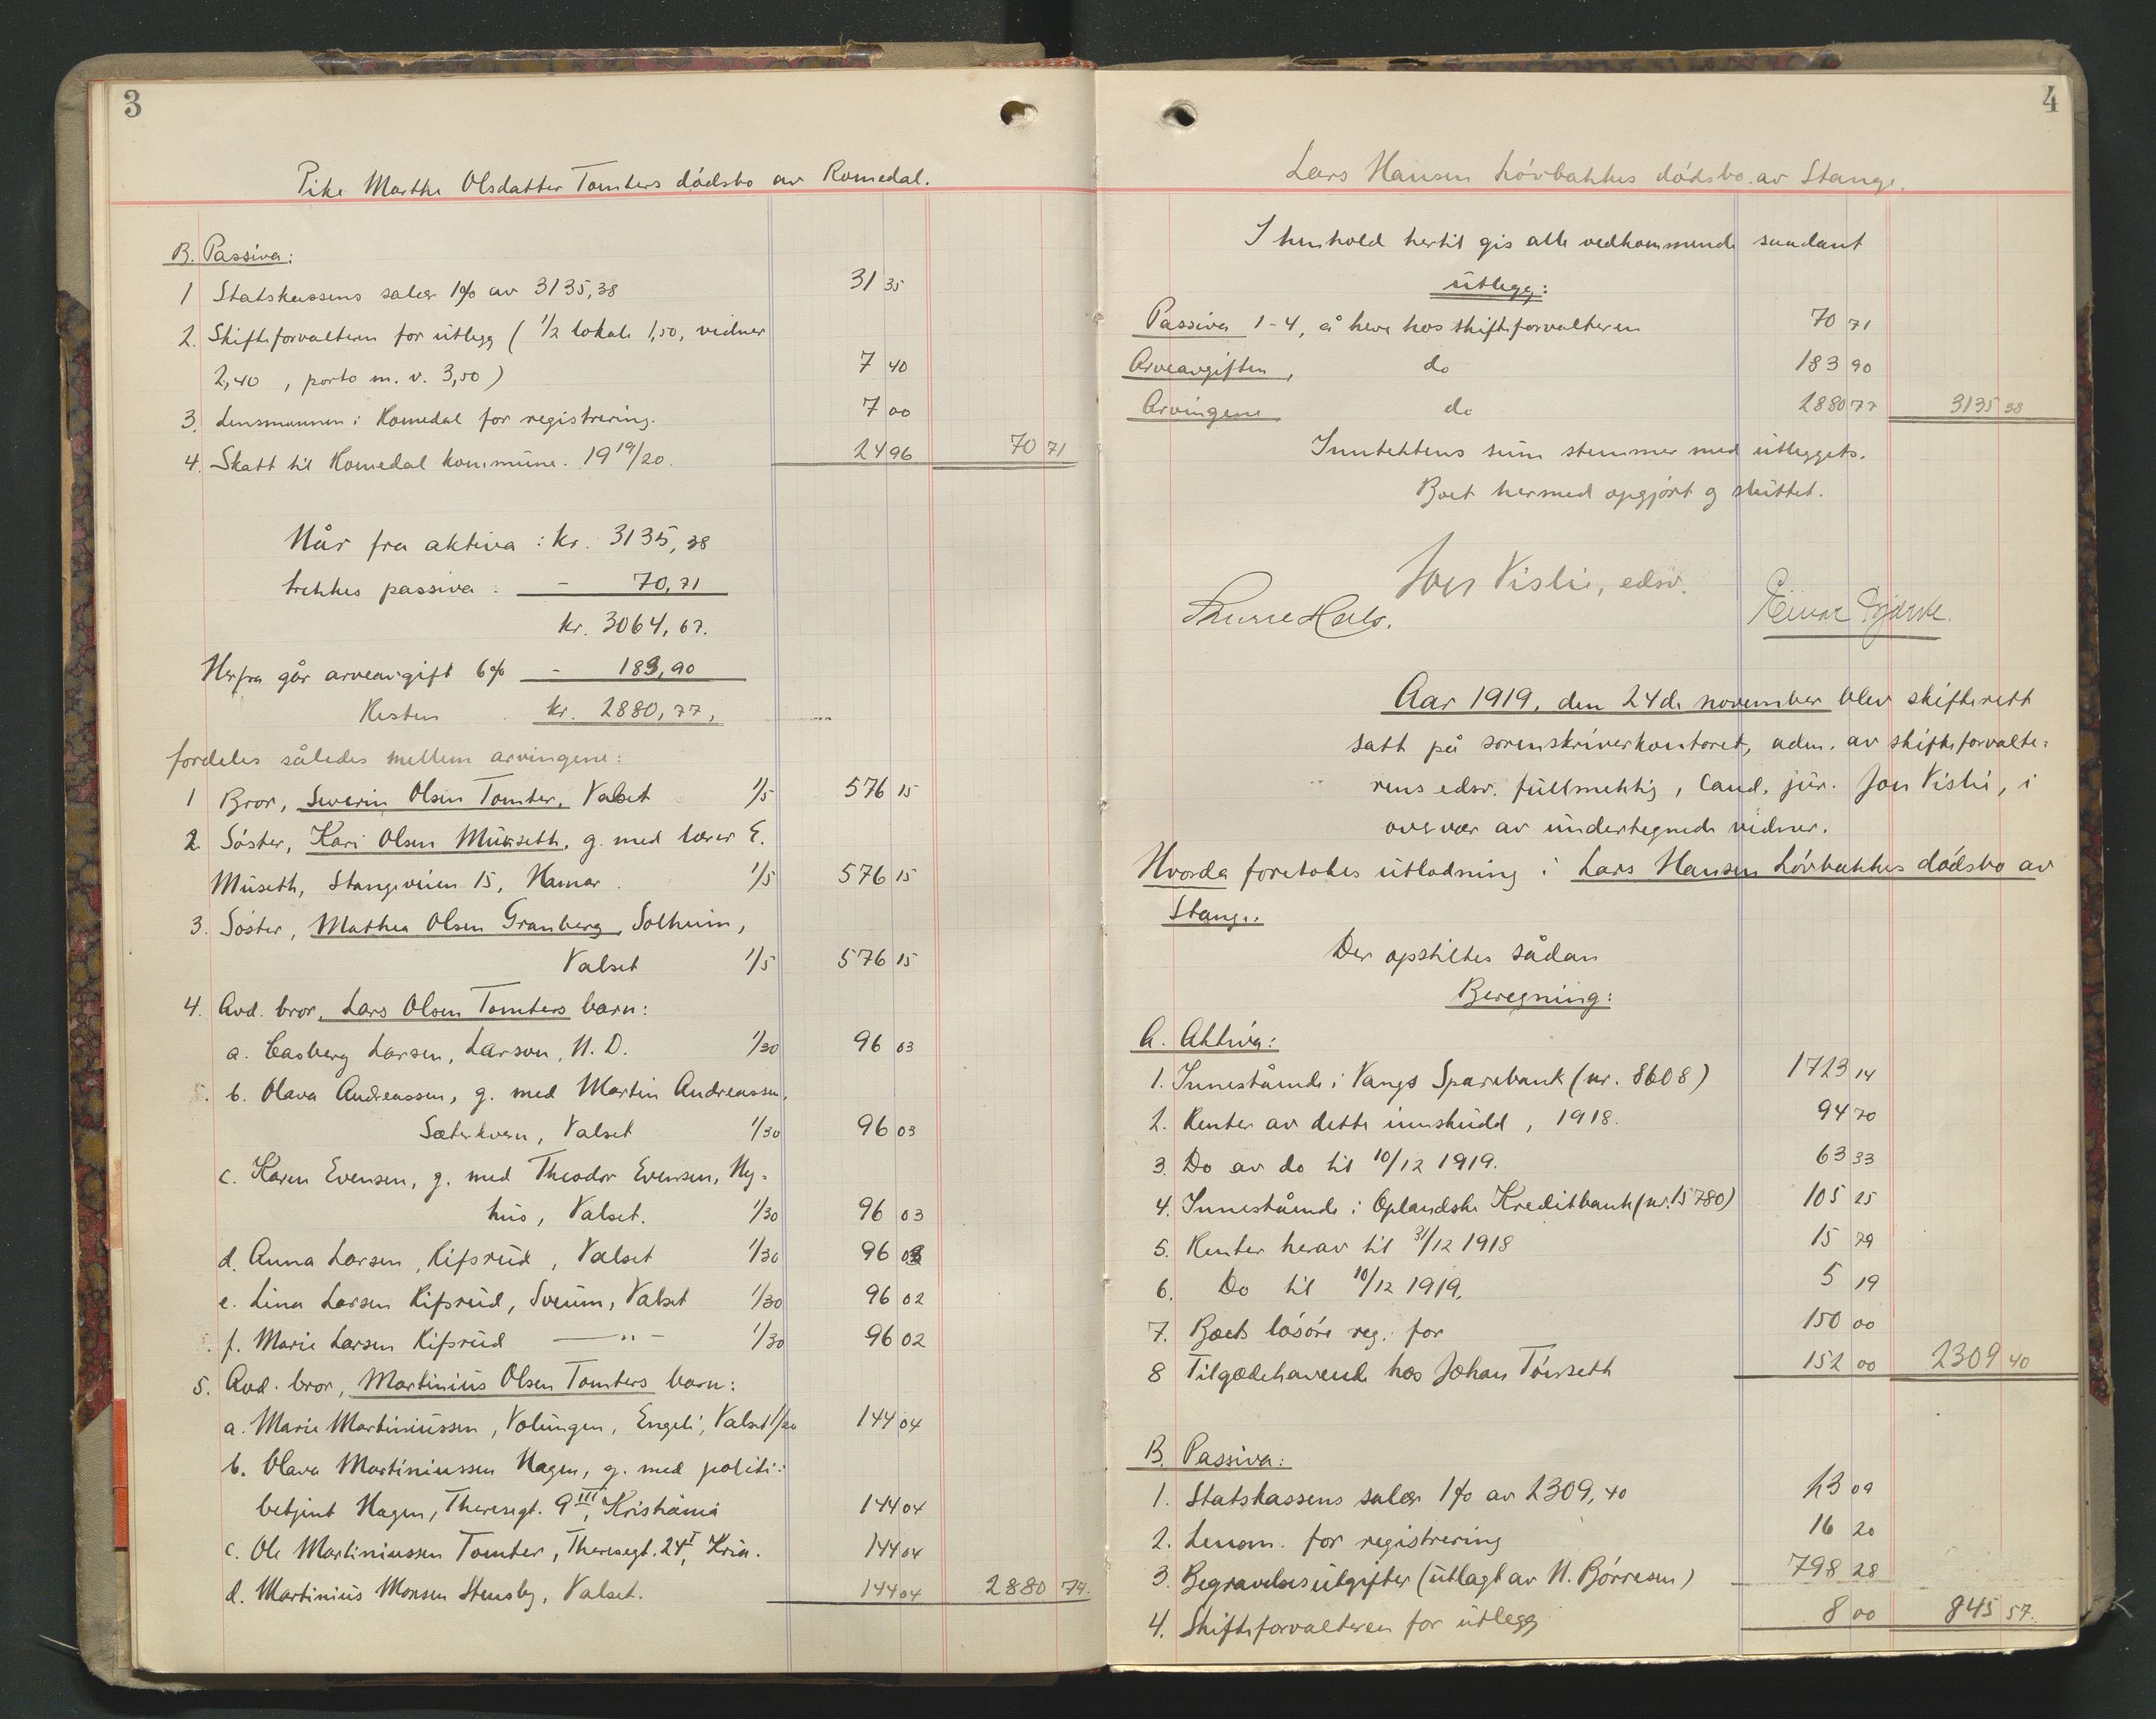 3
Pike Marthe Olsdatter Tomters dödsbo av Romedal.
B. Passiva:
1 Statskassens salær 1% av 3135,38 31 35
2. Skifteforvalteren for utlegg ( 1/2 lokale 1,50, vidner
2,40 , porto m. v. 3,50) 7 40
3. Lensmannen i Romedal for registrering. 7 00
4. Skatt til Romedal kommune. 19 19/20. 24 96 70 71
Når fra aktiva : kr. 3135,38
trekkes passiva : - 70,71
kr. 3064,67.
Herfra går arveavgift 6% - 183,90
Resten kr. 2880,77,
fordeles således mellem arvingene:
1 Bror, Severin Olsen Tomter, Valset 1/5 576 15
2 Söster, Kari Olsen Müseth, g. med lærer E.
Müseth, Stangeveien 15, Hamar. 1/5 576 15
3. Söster, Mathea Olsen Granberg, Solheim,
Valset 1/5 576 15
4. Avd. bror, Lars Olsen Tomters barn:
a. Casberg Larsen, Larson, N. D. 1/30 96 03
b. Olava Andreassen, g. med Martin Andreassen,
Sæterkvern, Valset 1/30 96 03
c. Karen Evensen, g. med Theodor Evensen, Ny-
hus, Valset. 1/30 96 03
d. Anna Larsen, Kifsrud, Valset 1/30 96 03
e. Lina Larsen Kifsrud, Sveum, Valset 1/30 96 02
f. Marie Larsen Kifsrud —"— 1/30 96 02
5. Avd. bror, Martinius Olsen Tomters barn:
a. Marie Martiniussen, Volungen, Engeli, Valset 1/20 144 04
b. Olava Martiniussen Hagen, g. med politi-
betjent Hagen, Theresegt. 9 III, Kristiania 144 04
c. Ole Martiniussen Tomter, Theresegt. 24 I, Kria. 144 04
d. Martinius Monsen Stensby, Valset. 144 04 2880 77.
4
Lars Hansen Lövbakkes dödsbo av Stange.
I henhold hertil gis alle vedkommende saadant
utlegg:
Passiva 1-4, å heve hos skifteforvalteren 70 71
Arveavgiften, do 183 90
Arvingene do 2880 77 3135 38
Inntektens sum stemmer med utleggets.
Boet hermed opgjört og sluttet.
Jon Visli, edsv.
Aar 1919, den 24de november blev skifterett
satt på sorenskriverkontoret, adm. av skifteforvalte-
rens edsv. fullmektig, cand. jur. Jon Visli, i
overvær av undertegnede vidner.
Hvorda foretokes utlodning i Lars Hansen Lövbakkes dödsbo av
Stange.
Der opstiltes sådan
Beregning:
A. Aktiva:
1. Innestående i Vangs Sparebank (nr. 8608) 1723 14
2. Renter av dette innskudd, 1918. 94 70
3. Do av do til 10/12 1919. 63 33
4. Innestående i Oplandske Kreditbank (nr. 15780) 105 25
5. Renter herav til 31/12 1918 15 79
6. Do til 10/12 1919. 5 19
7. Boets lösöre reg. for 150 00
8 Tilgodehavende hos Johan Tönseth 152 00 2309 40
B. Passiva:
1. Statskassens salær 1% av 2309,40 23 09
2. Lensm. for registrering 16 20
3. Begravelsesutgifter (utlagt av N. Börresen) 798 28
4. Skifteforvalteren for utlegg 8 00 845 57.